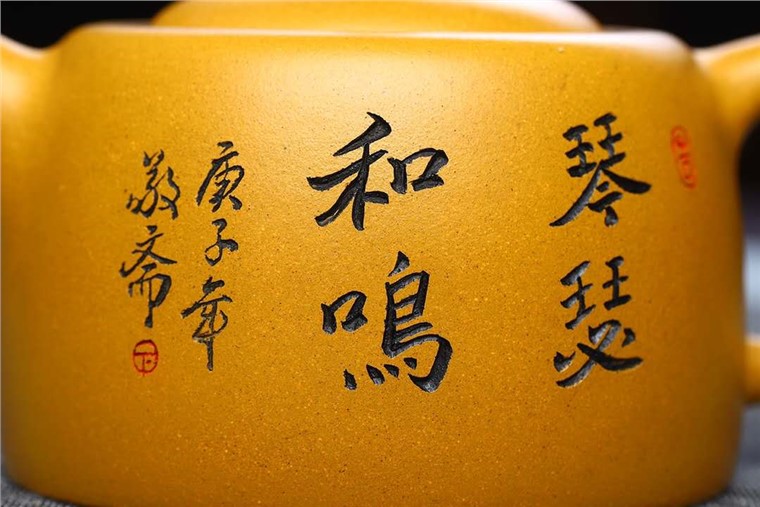 琴瑟
和鳴
庚子年
敬斋